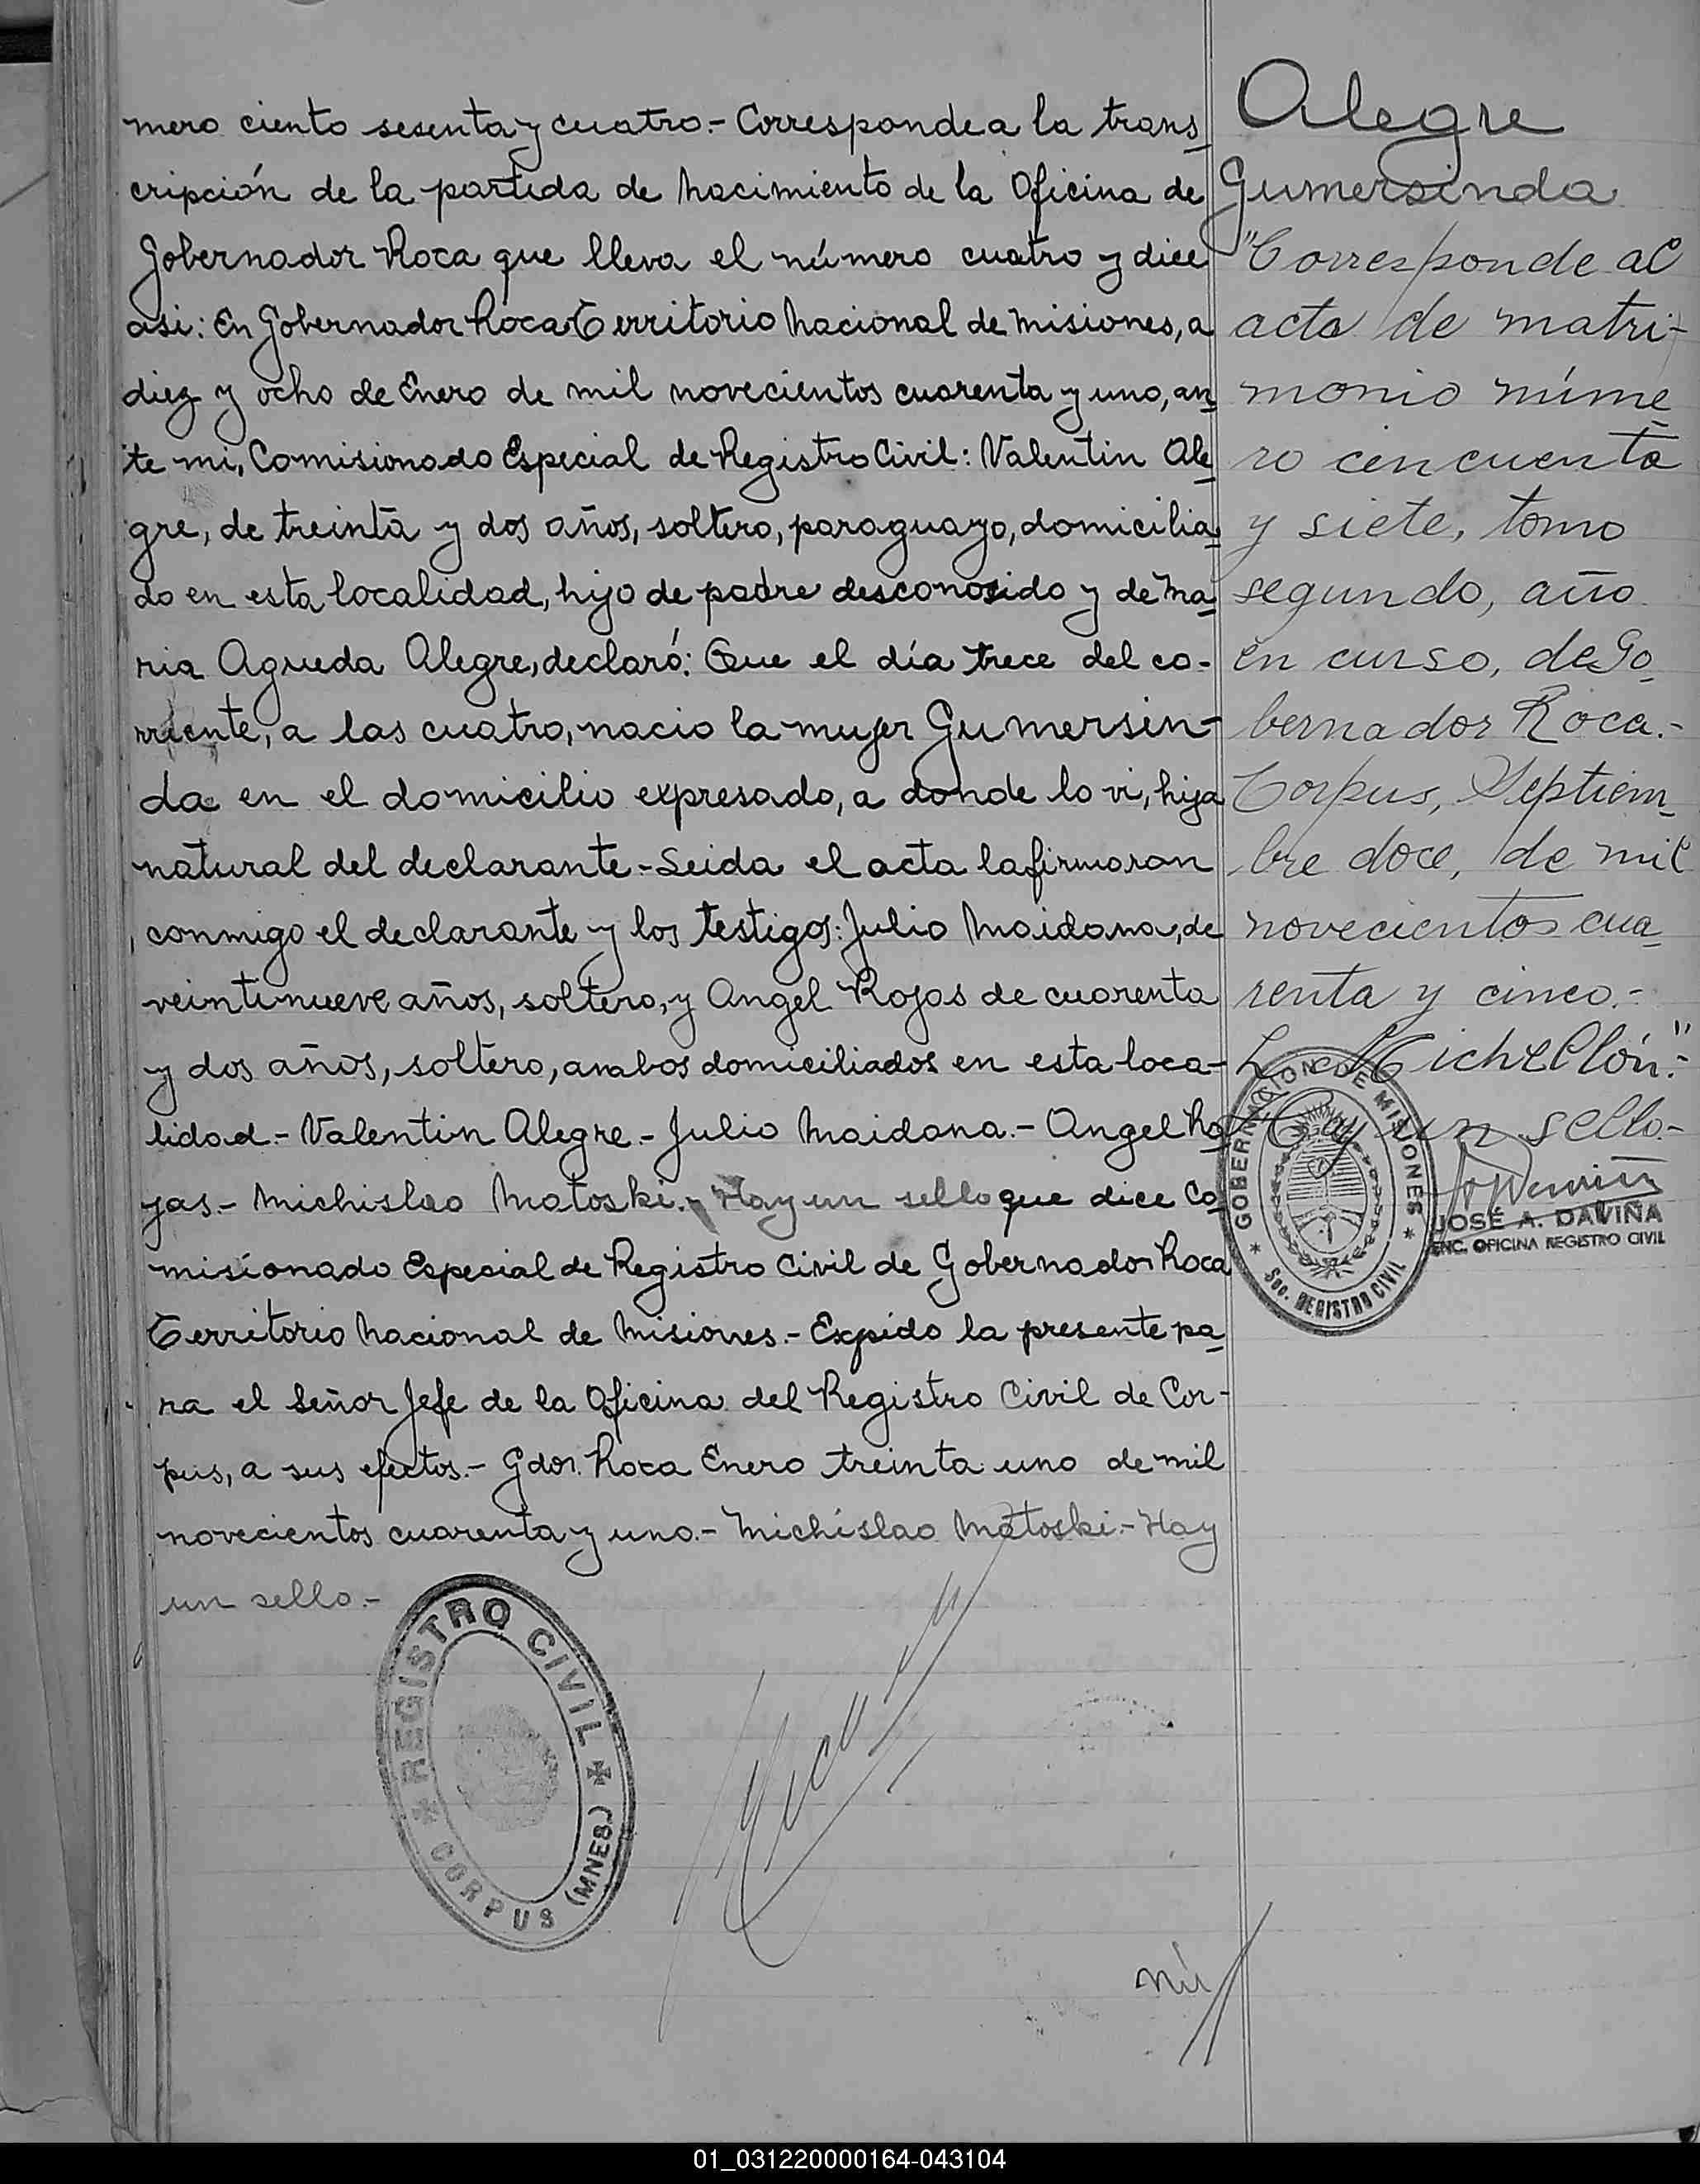 mero ciento sesenta y cuatro.- Corresponde a la trans
cripción de la partida de Nacimiento de la Oficina de
Gobernador Roca que lleva el número cuatro y dice
asi: En Gobernador Roca Territorio Nacional de Misiones, a
diez y ocho de Enero de mil novecientos cuarenta y uno, an
te mi, Comisionado Especial de Registro Civil: Valentin Ale
gre, de treinta y dos años, soltero, paraguayo, domicilia
do en esta localidad, hijo de padre desconosido y de Ma
ria Agueda Alegre, declaró: Que el día trece del co-
rriente, a las cuatro, nacio la mujer Gumersin-
da en el domicilio expresado, a donde lo vi, hija
natural del declarante.- Leida el acta la firmaron
conmigo el declarante y los testigos: Julio Maidana, de
veintinueve años, soltero, y Angel Rojas de cuarenta
y dos años, soltero, ambos domiciliados en esta loca-
lidad.- Valentin Alegre.- Julio Maidana.- Angel Ro
jas.- Michislao Matoski.- Hay un sello que dice Co
misionado Especial de Registro Civil de Gobernador Roca
Territorio Nacional de Misiones.- Expido la presente pa
ra el Señor Jefe de la Oficina del Registro Civil de Cor-
pus, a sus efectos.- Gdor. Roca Enero treinta uno de mil
novecientos cuarenta y uno.- Michislao Matoski.- Hay
un sello.-
REGISTRO CIVIL
CORPUS (MNES.)
nú
Alegre
Gumersinda
"Corresponde al
acta de matri-
monio núme
ro cincuenta
y siete, tomo
segundo, año
en curso, de Go
bernador Roca.-
Corpus, Septiem
bre doce, de mil
novecientos cua
renta y cinco.-
L. Michellón."-
Hay un sello.-
GOBERNACION DE MISIONES
Sec. REGISTRO CIVIL
JOSÉ A. DAVIÑA
ENC. OFICINA REGISTRO CIVIL
01_031220000164-043104